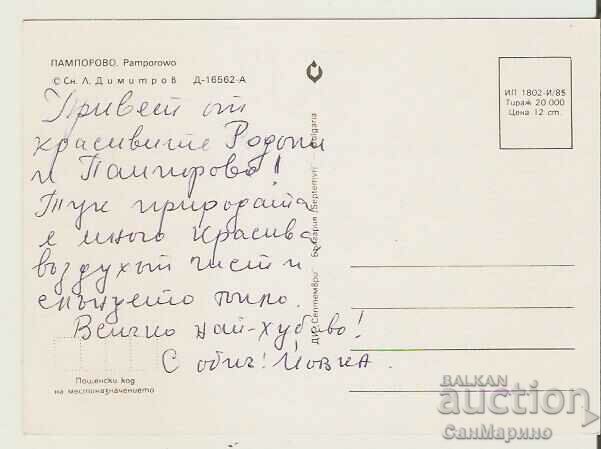 ПАМПОРОВО. Pamporowo
© Сн. Л. Димитров Д-16562-А
ИП 1802-И/85
Тираж 20 000
Цена 12 ст.
Привет от
красивите Родопи
и Пампорово!
Тук природата
е много красива
въздухът чист и
слънцето топло.
Всичко най-хубаво!
С обич! Йовка.
ДИ „Септември“ България /Septemvri/ Bulgaria
Пощенски код
на местоназначението
BALKAN
auction
СанМарино